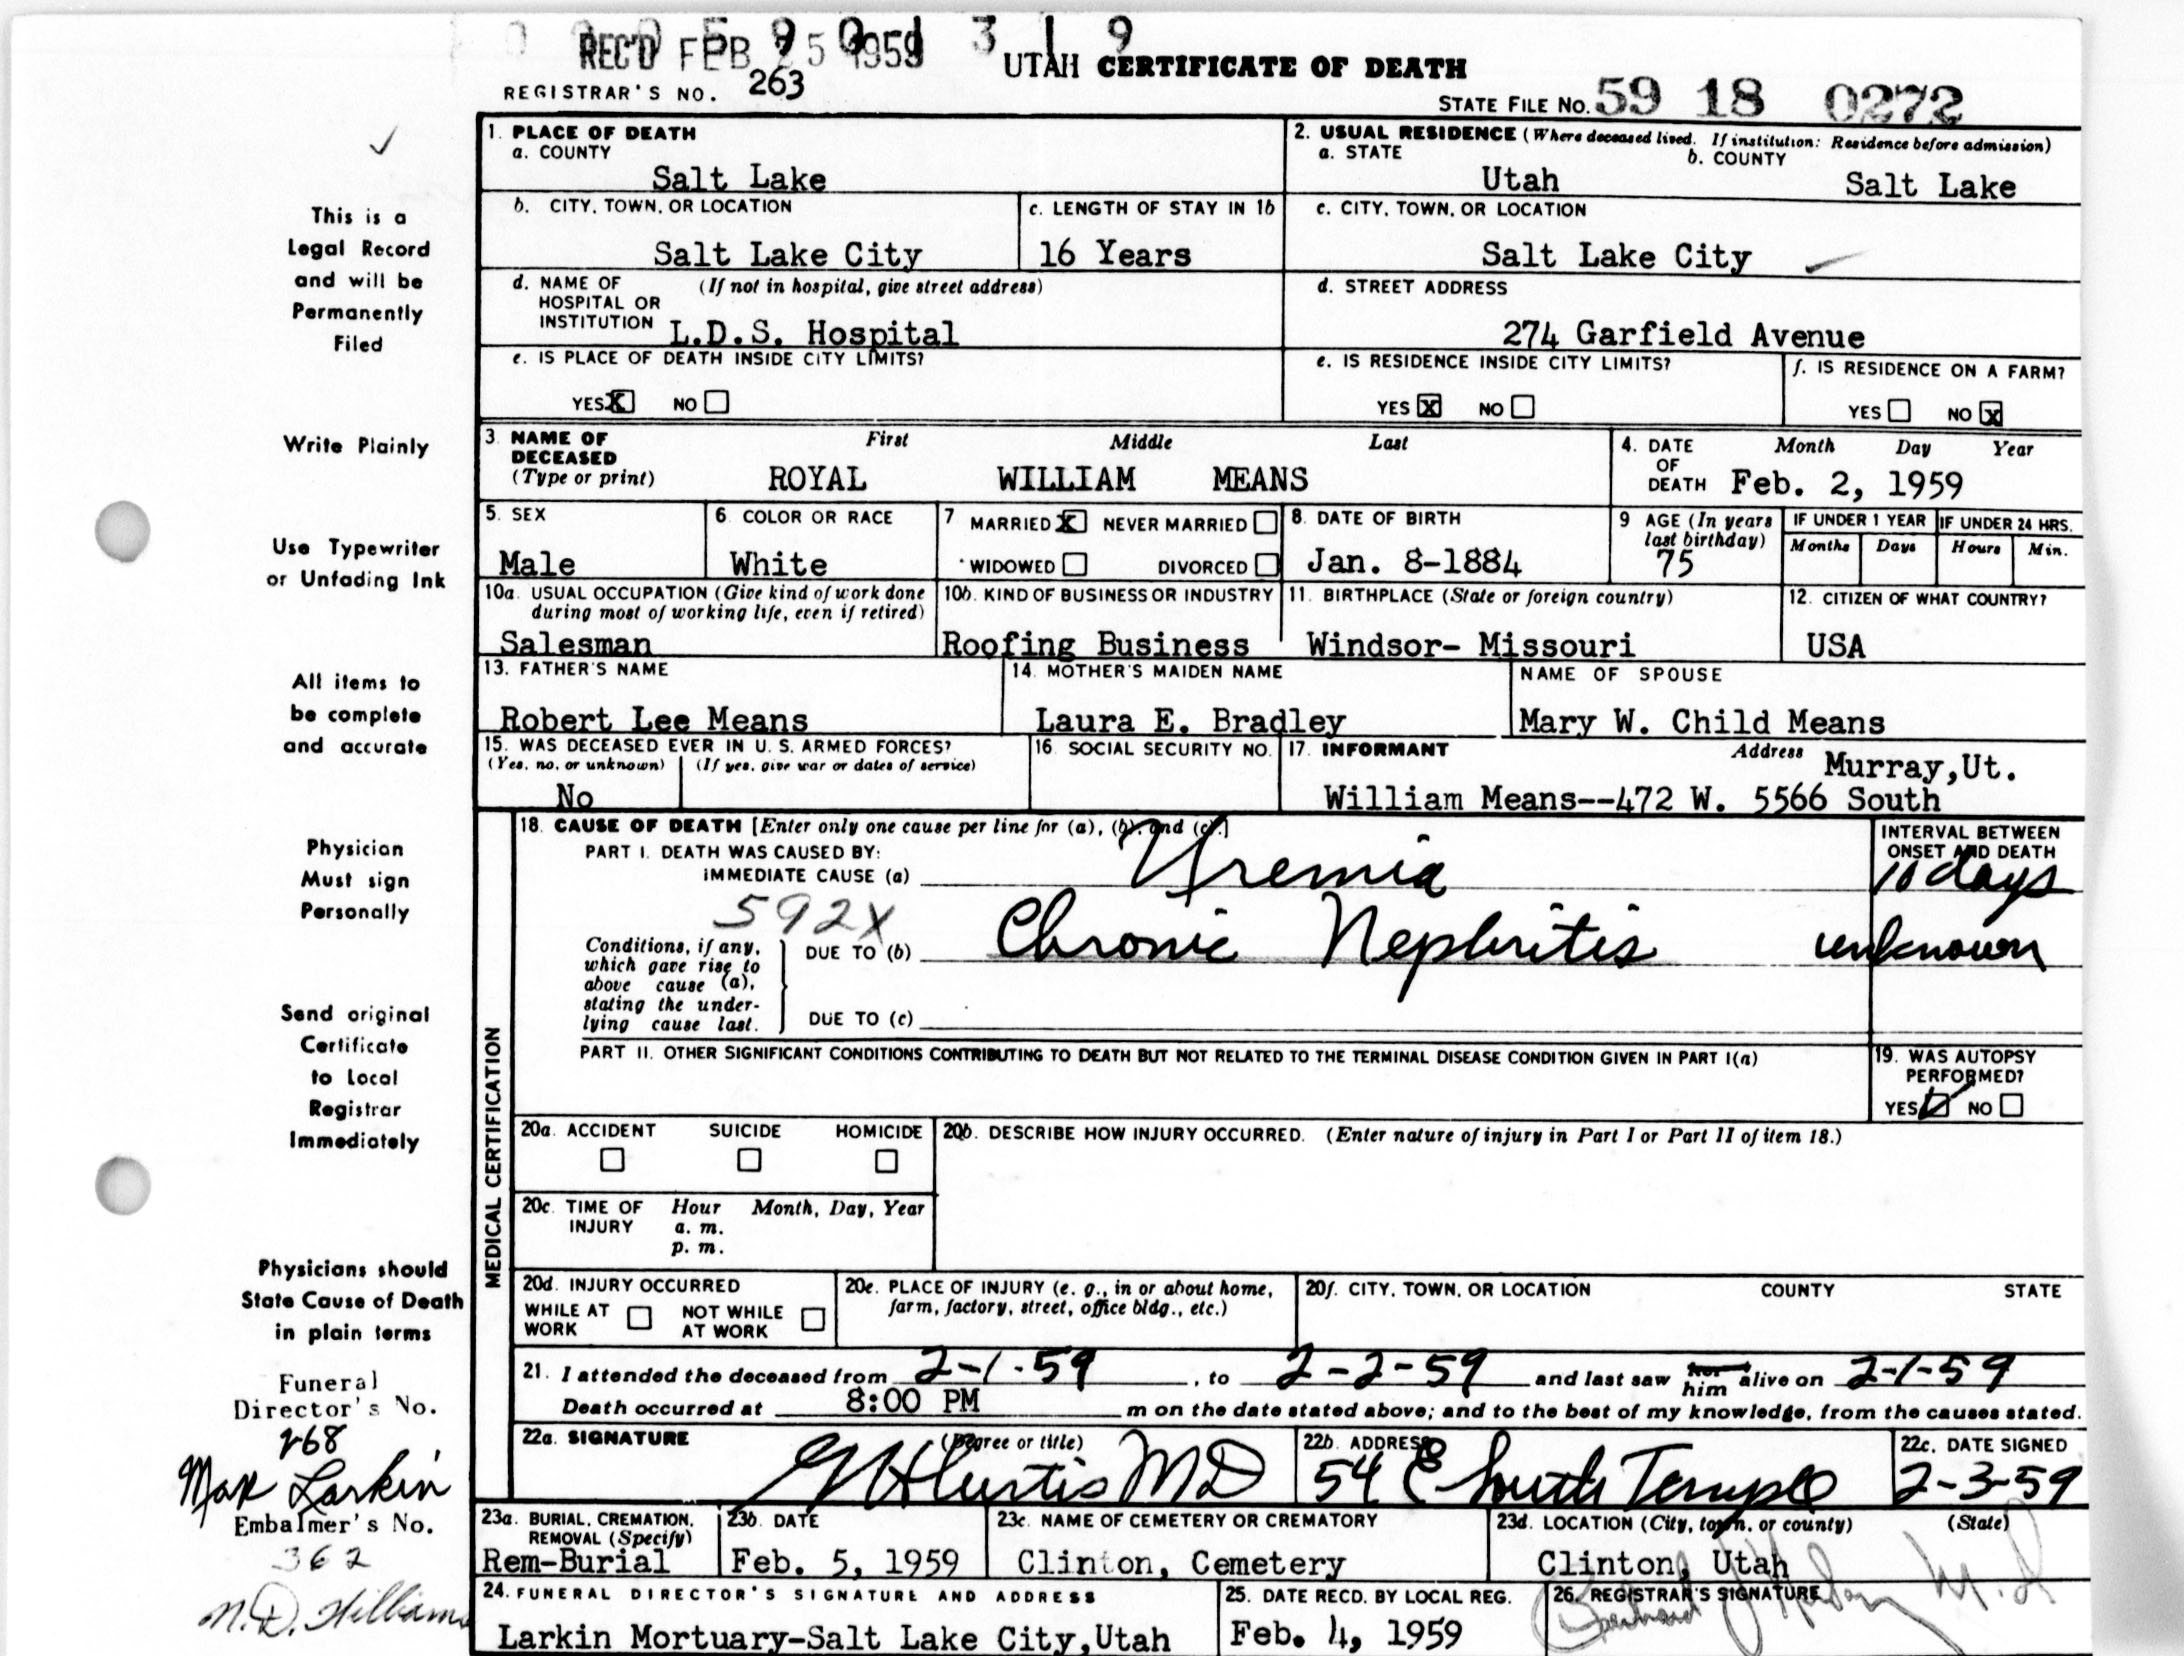 REC'D FEB 25 1959
UTAH CERTIFICATE OF DEATH
REGISTRAR'S NO. 263
STATE FILE NO. 59 18 0272
1. PLACE OF DEATH
a. COUNTY
Salt Lake
2. USUAL RESIDENCE (Where deceased lived. If institution: Residence before admission)
a. STATE b. COUNTY
Utah Salt Lake
b. CITY, TOWN, OR LOCATION
Salt Lake City
c. LENGTH OF STAY IN 1b
16 Years
c. CITY, TOWN, OR LOCATION
Salt Lake City
d. NAME OF HOSPITAL OR INSTITUTION (If not in hospital, give street address)
L.D.S. Hospital
d. STREET ADDRESS
274 Garfield Avenue
e. IS PLACE OF DEATH INSIDE CITY LIMITS?
YES X NO
e. IS RESIDENCE INSIDE CITY LIMITS?
YES X NO
f. IS RESIDENCE ON A FARM?
YES NO X
3. NAME OF DECEASED (Type or print)
First Middle Last
ROYAL WILLIAM MEANS
4. DATE OF DEATH Month Day Year
Feb. 2, 1959
5. SEX
Male
6. COLOR OR RACE
White
7 MARRIED X NEVER MARRIED
WIDOWED DIVORCED
8. DATE OF BIRTH
Jan. 8-1884
9 AGE (In years last birthday)
75
IF UNDER 1 YEAR
Months Days
IF UNDER 24 HRS.
Hours Min.
10a. USUAL OCCUPATION (Give kind of work done during most of working life, even if retired)
Salesman
10b. KIND OF BUSINESS OR INDUSTRY
Roofing Business
11. BIRTHPLACE (State or foreign country)
Windsor- Missouri
12. CITIZEN OF WHAT COUNTRY?
USA
13. FATHER'S NAME
Robert Lee Means
14. MOTHER'S MAIDEN NAME
Laura E. Bradley
NAME OF SPOUSE
Mary W. Child Means
15. WAS DECEASED EVER IN U. S. ARMED FORCES?
(Yes, no, or unknown) (If yes, give war or dates of service)
No
16. SOCIAL SECURITY NO.
17. INFORMANT Address
Murray,Ut.
William Means--472 W. 5566 South
MEDICAL CERTIFICATION
18. CAUSE OF DEATH [Enter only one cause per line for (a), (b), and (c).]
PART I. DEATH WAS CAUSED BY:
IMMEDIATE CAUSE (a) Uremia
INTERVAL BETWEEN ONSET AND DEATH
10 days
592X
Conditions, if any, which gave rise to above cause (a), stating the underlying cause last.
DUE TO (b) Chronic Nephritis unknown
DUE TO (c)
PART II. OTHER SIGNIFICANT CONDITIONS CONTRIBUTING TO DEATH BUT NOT RELATED TO THE TERMINAL DISEASE CONDITION GIVEN IN PART I(a)
19. WAS AUTOPSY PERFORMED?
YES NO
20a. ACCIDENT SUICIDE HOMICIDE
20b. DESCRIBE HOW INJURY OCCURRED. (Enter nature of injury in Part I or Part II of item 18.)
20c. TIME OF INJURY Hour Month, Day, Year
a. m.
p. m.
20d. INJURY OCCURRED
WHILE AT WORK NOT WHILE AT WORK
20e. PLACE OF INJURY (e. g., in or about home, farm, factory, street, office bldg., etc.)
20f. CITY, TOWN, OR LOCATION COUNTY STATE
21. I attended the deceased from 2-1-59, to 2-2-59 and last saw her him alive on 2-1-59
Death occurred at 8:00 PM m on the date stated above; and to the best of my knowledge, from the causes stated.
22a. SIGNATURE (Degree or title)
Curtis MD
22b. ADDRESS
54 E South Temple
22c. DATE SIGNED
2-3-59
23a. BURIAL, CREMATION, REMOVAL (Specify)
Rem-Burial
23b. DATE
Feb. 5, 1959
23c. NAME OF CEMETERY OR CREMATORY
Clinton, Cemetery
23d. LOCATION (City, town, or county) (State)
Clinton, Utah
24. FUNERAL DIRECTOR'S SIGNATURE AND ADDRESS
Larkin Mortuary-Salt Lake City,Utah
25. DATE RECD. BY LOCAL REG.
Feb. 4, 1959
26. REGISTRAR'S SIGNATURE
This is a
Legal Record
and will be
Permanently
Filed
Write Plainly
Use Typewriter
or Unfading Ink
All items to
be complete
and accurate
Physician
Must sign
Personally
Send original
Certificate
to Local
Registrar
Immediately
Physicians should
State Cause of Death
in plain terms
Funeral
Director's No.
268
Max Larkin
Embalmer's No.
362
N.D. Williams